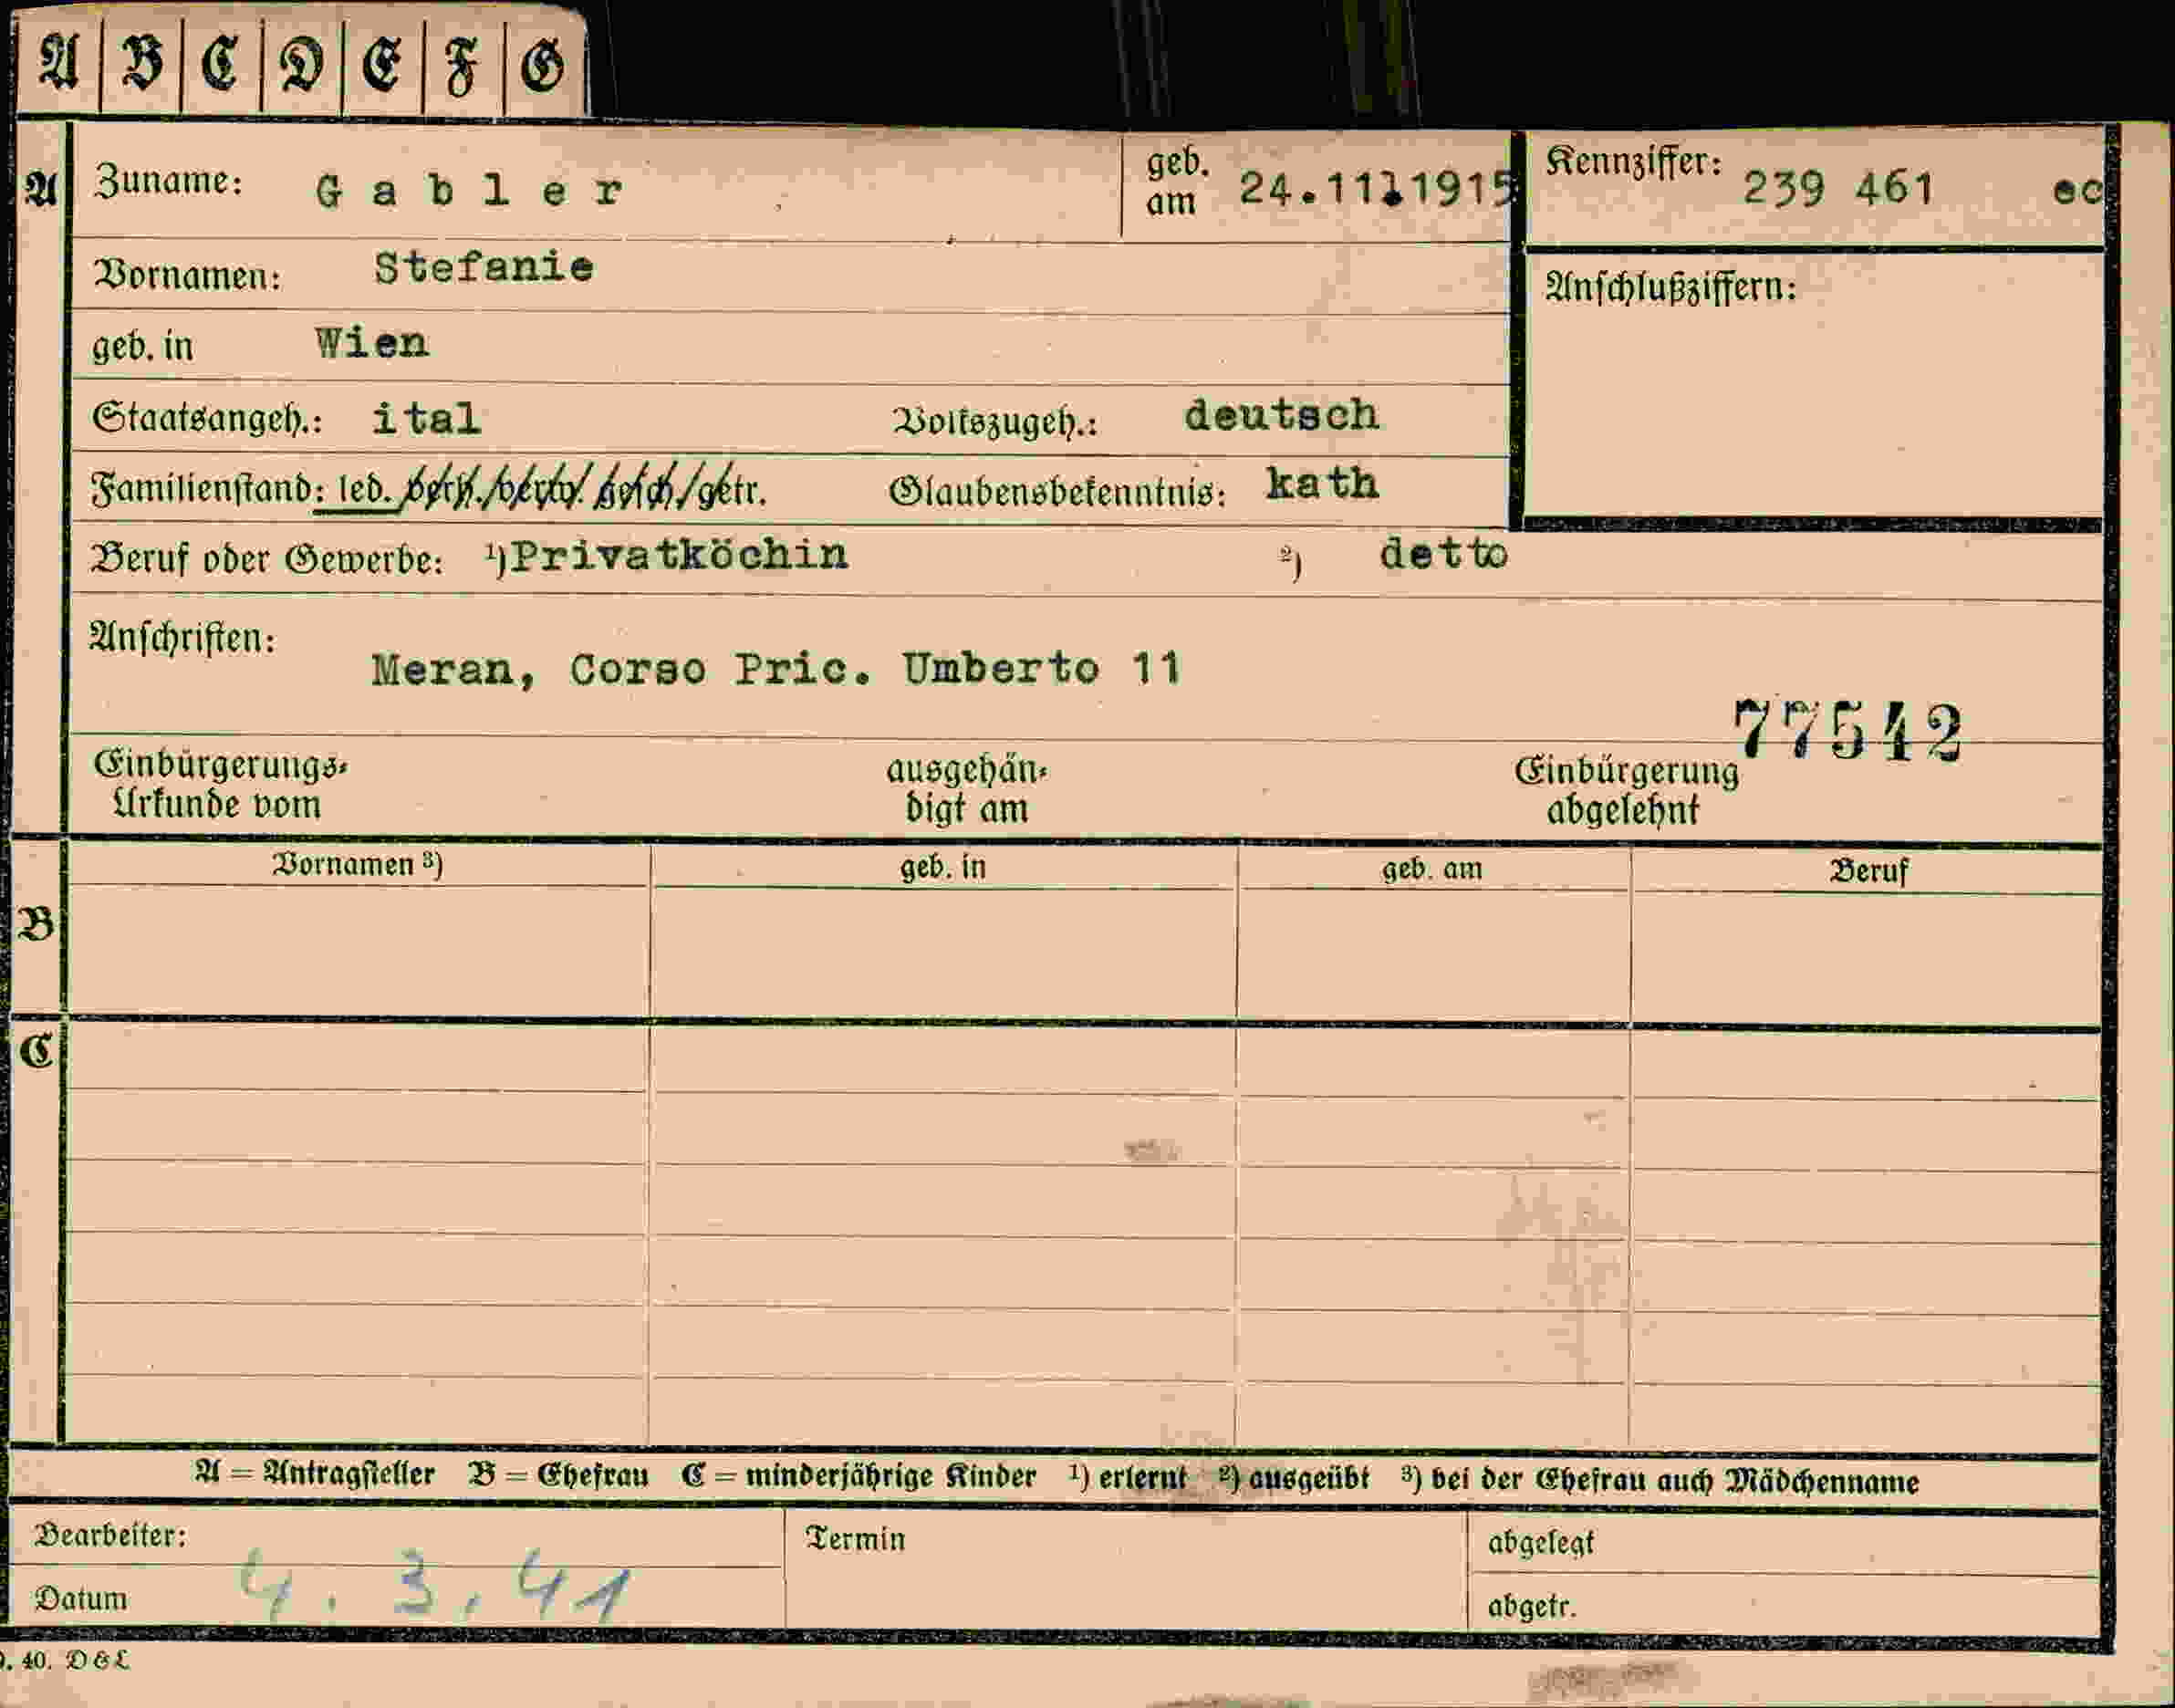 A B C D E F G
A Zuname: Gabler geb. am 24.11.1915 Kennziffer: 239 461 ec
Vornamen: Stefanie
Anschlußziffern:
geb. in Wien
Staatsangeh.: ital Volkszugeh.: deutsch
Familienstand: led. verh./verw. gesch./getr. Glaubensbekenntnis: kath
Beruf oder Gewerbe: ¹) Privatköchin ²) detto
Anschriften:
Meran, Corso Pric. Umberto 11
77542
Einbürgerungs- ausgehän- Einbürgerung
Urkunde vom digt am abgelehnt
Vornamen ³) geb. in geb. am Beruf
B
C
A = Antragsteller B = Ehefrau C = minderjährige Kinder ¹) erlernt ²) ausgeübt ³) bei der Ehefrau auch Mädchenname
Bearbeiter: Termin abgelegt
Datum 4.3.41 abgetr.
40. D & L